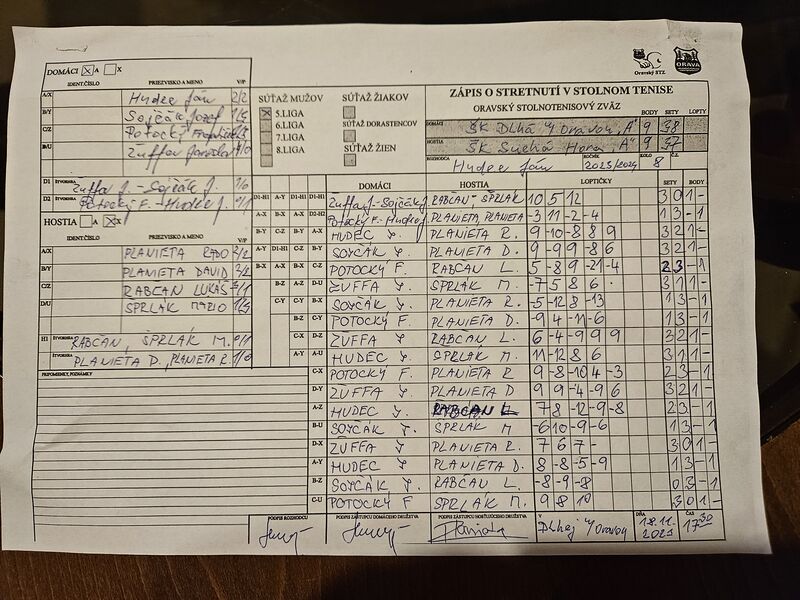 DOMÁCI ☒ A ☐ X
IDENT.ČÍSLO PRIEZVISKO A MENO V/P
A/X Hudec Ján 2/2
B/Y Sojčák Jozef
C/Z Potocký
B/U Žuffa
D1 štvorhra Žuffa J. - Sojčák J. 1/0
D2 štvorhra Potocký F. - Hudec J. 0/1
HOSTIA ☐ A ☒ X
IDENT.ČÍSLO PRIEZVISKO A MENO V/P
A/X PLANIETA RADO 2/2
B/Y PLANIETA DAVID
C/Z RABČAN LUKÁŠ
D/U ŠPRLÁK MARIO
H1 štvorhra RABČAN, ŠPRLÁK M. 0/1
štvorhra PLANIETA D., PLANIETA R. 1/0
PRIPOMIENKY, POZNÁMKY
SÚŤAŽ MUŽOV
☒ 5.LIGA
6.LIGA
7.LIGA
8.LIGA
SÚŤAŽ ŽIAKOV
SÚŤAŽ DORASTENCOV
SÚŤAŽ ŽIEN
Oravský STZ
ORAVA
ZÁPIS O STRETNUTÍ V STOLNOM TENISE
ORAVSKÝ STOLNOTENISOVÝ ZVÄZ BODY SETY LOPTY
DOMÁCI ŠK Dlhá n/Oravou "A" 9 38
HOSTIA ŠK Suchá Hora "A" 9 37
ROZHODCA Hudec Ján ROČNÍK KOLO 8 Č.
DOMÁCI HOSTIA LOPTIČKY SETY BODY
D1-H1 A-Y D1-H1 D1-H1 Žuffa J.-Sojčák J. RABČAN - ŠPRLÁK 10 5 12 3 0 1 -
A-X B-X A-X D2-H2 Potocký F.-Hudec J. PLANIETA, PLANIETA -3 11 -2 -4 1 3 - 1
B-Y C-Z B-Y A-X HUDEC J. PLANIETA R. 9 -10 -8 8 9 3 2 1 -
A-Y D1-H1 C-Z B-Y SOJČÁK J. PLANIETA D. 9 -9 9 -8 6 3 2 1 -
B-X A-X B-X C-Z POTOCKÝ F. RABČAN L. 5 -8 9 -21 -4 2 3 - 1
B-Z A-Z D-U ŽUFFA J. ŠPRLÁK M. -7 5 8 6 3 1 1 -
C-Y C-Y B-X SOJČÁK J. PLANIETA R. -5 -12 8 -13 1 3 - 1
B-Z C-Y POTOCKÝ F. PLANIETA D. -9 4 -11 -6 1 3 - 1
C-X D-Z ŽUFFA J. RABČAN L. 6 -4 -9 9 9 3 2 1 -
A-Y A-U HUDEC J. ŠPRLÁK M. 11 -12 8 6 3 1 1 -
C-X POTOCKÝ F. PLANIETA R. 9 -8 -10 4 -3 2 3 - 1
D-Y ŽUFFA J. PLANIETA D 9 9 -4 -9 6 3 2 1 -
A-Z HUDEC J. RABČAN L 7 8 -12 -9 -8 2 3 - 1
B-U SOJČÁK J. ŠPRLÁK M -6 10 -9 -6 1 3 - 1
D-X ŽUFFA J PLANIETA R. 7 6 7 - 3 0 1 -
A-Y HUDEC J PLANIETA D. 8 -8 -5 -9 1 3 - 1
B-Z SOJČÁK J RABČAN L. -8 -9 -8 0 3 - 1
C-U POTOCKÝ F ŠPRLÁK M. 9 8 10 3 0 1 -
PODPIS ROZHODCU PODPIS ZÁSTUPCU DOMÁCEHO DRUŽSTVA PODPIS ZÁSTUPCU HOSŤUJÚCEHO DRUŽSTVA V Dlhej n/Oravou DŇA 18.11. ČAS 17 30